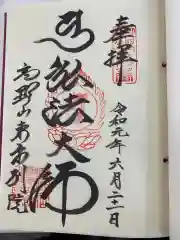 奉拝
令和元年六月二十一日
弘法大師
高野山東京別院